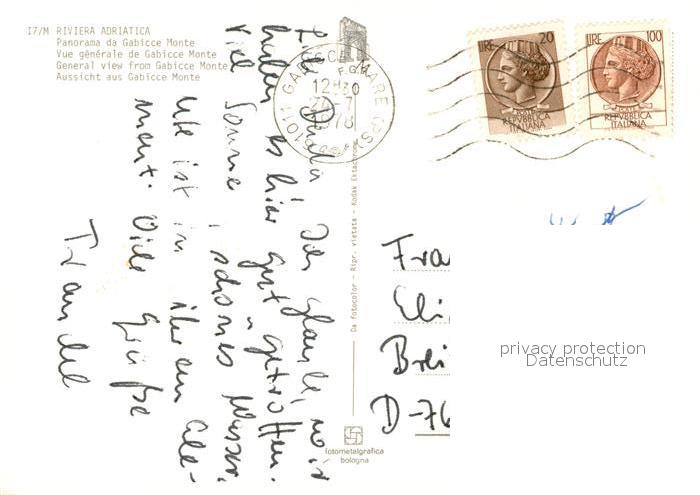 17/M RIVIERA ADRIATICA
Panorama da Gabicce Monte
Vue générale de Gabicce Monte
General view from Gabicce Monte
Aussicht aus Gabicce Monte
61011 GABICCE MARE (PS)
12H30
1978
LIRE 20
REPVBBLICA
ITALIANA
LIRE 100
REPVBBLICA
ITALIANA
Ich glaube, wir
haben es hier gut getroffen.
Viel Sonne, schönes Wasser,
Ute ist in ihrem Ele-
ment. Viele Grüße
Da fotocolor - Ripr. vietata - Kodak Ektachrome
Fra
Eli
Brei
D-76
fotometalgrafica
bologna
privacy protection
Datenschutz